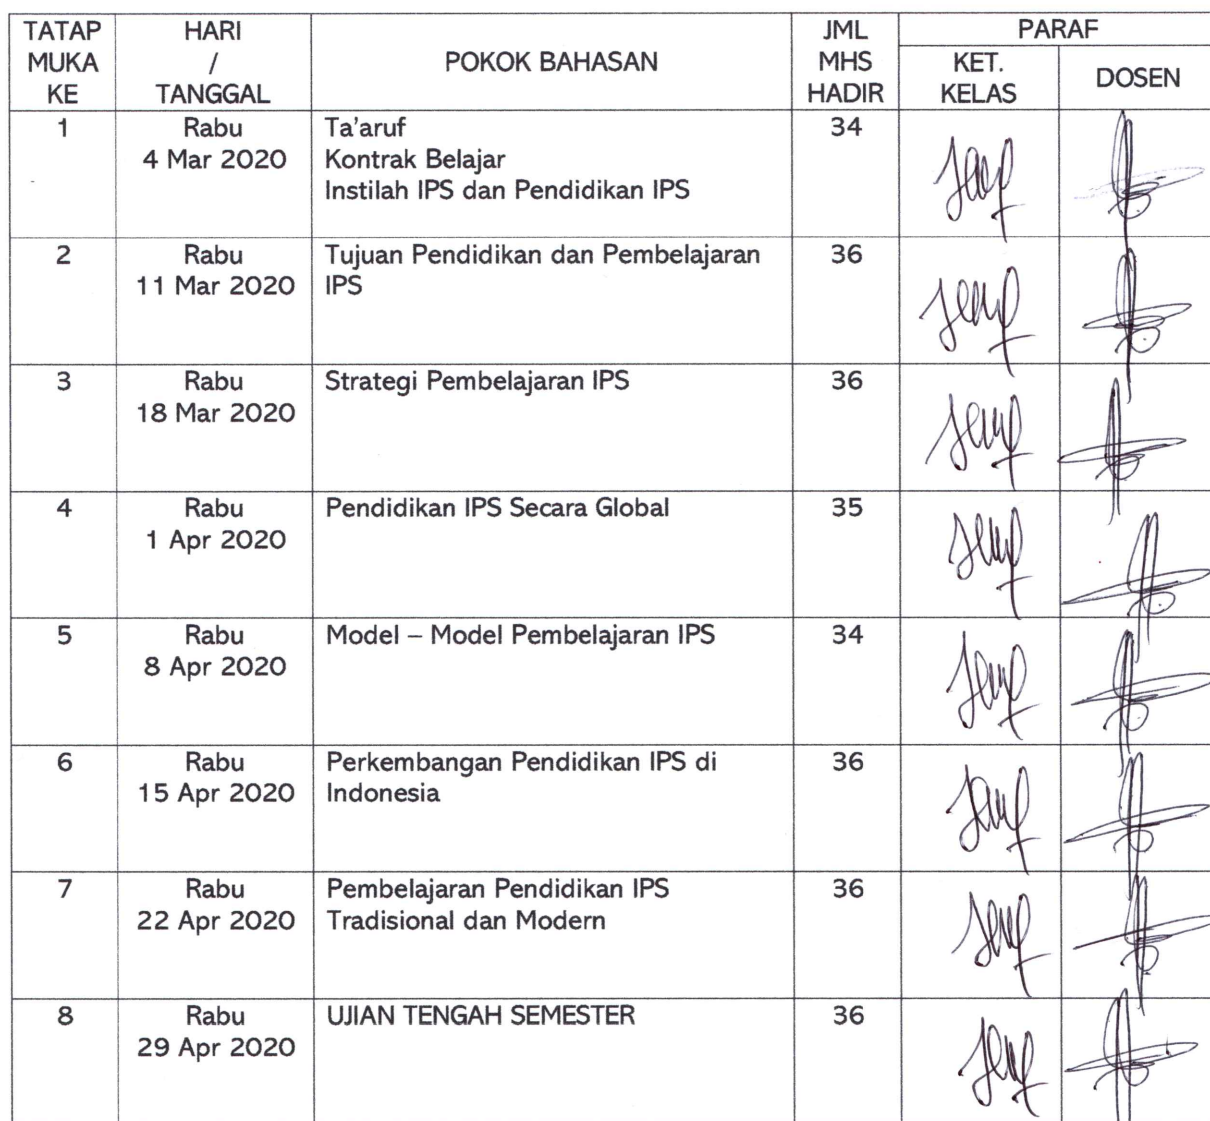 TATAP MUKA KE
HARI / TANGGAL
POKOK BAHASAN
JML MHS HADIR
PARAF
KET. KELAS
DOSEN
1
Rabu
4 Mar 2020
Ta'aruf
Kontrak Belajar
Instilah IPS dan Pendidikan IPS
34
2
Rabu
11 Mar 2020
Tujuan Pendidikan dan Pembelajaran
IPS
36
3
Rabu
18 Mar 2020
Strategi Pembelajaran IPS
36
4
Rabu
1 Apr 2020
Pendidikan IPS Secara Global
35
5
Rabu
8 Apr 2020
Model – Model Pembelajaran IPS
34
6
Rabu
15 Apr 2020
Perkembangan Pendidikan IPS di
Indonesia
36
7
Rabu
22 Apr 2020
Pembelajaran Pendidikan IPS
Tradisional dan Modern
36
8
Rabu
29 Apr 2020
UJIAN TENGAH SEMESTER
36